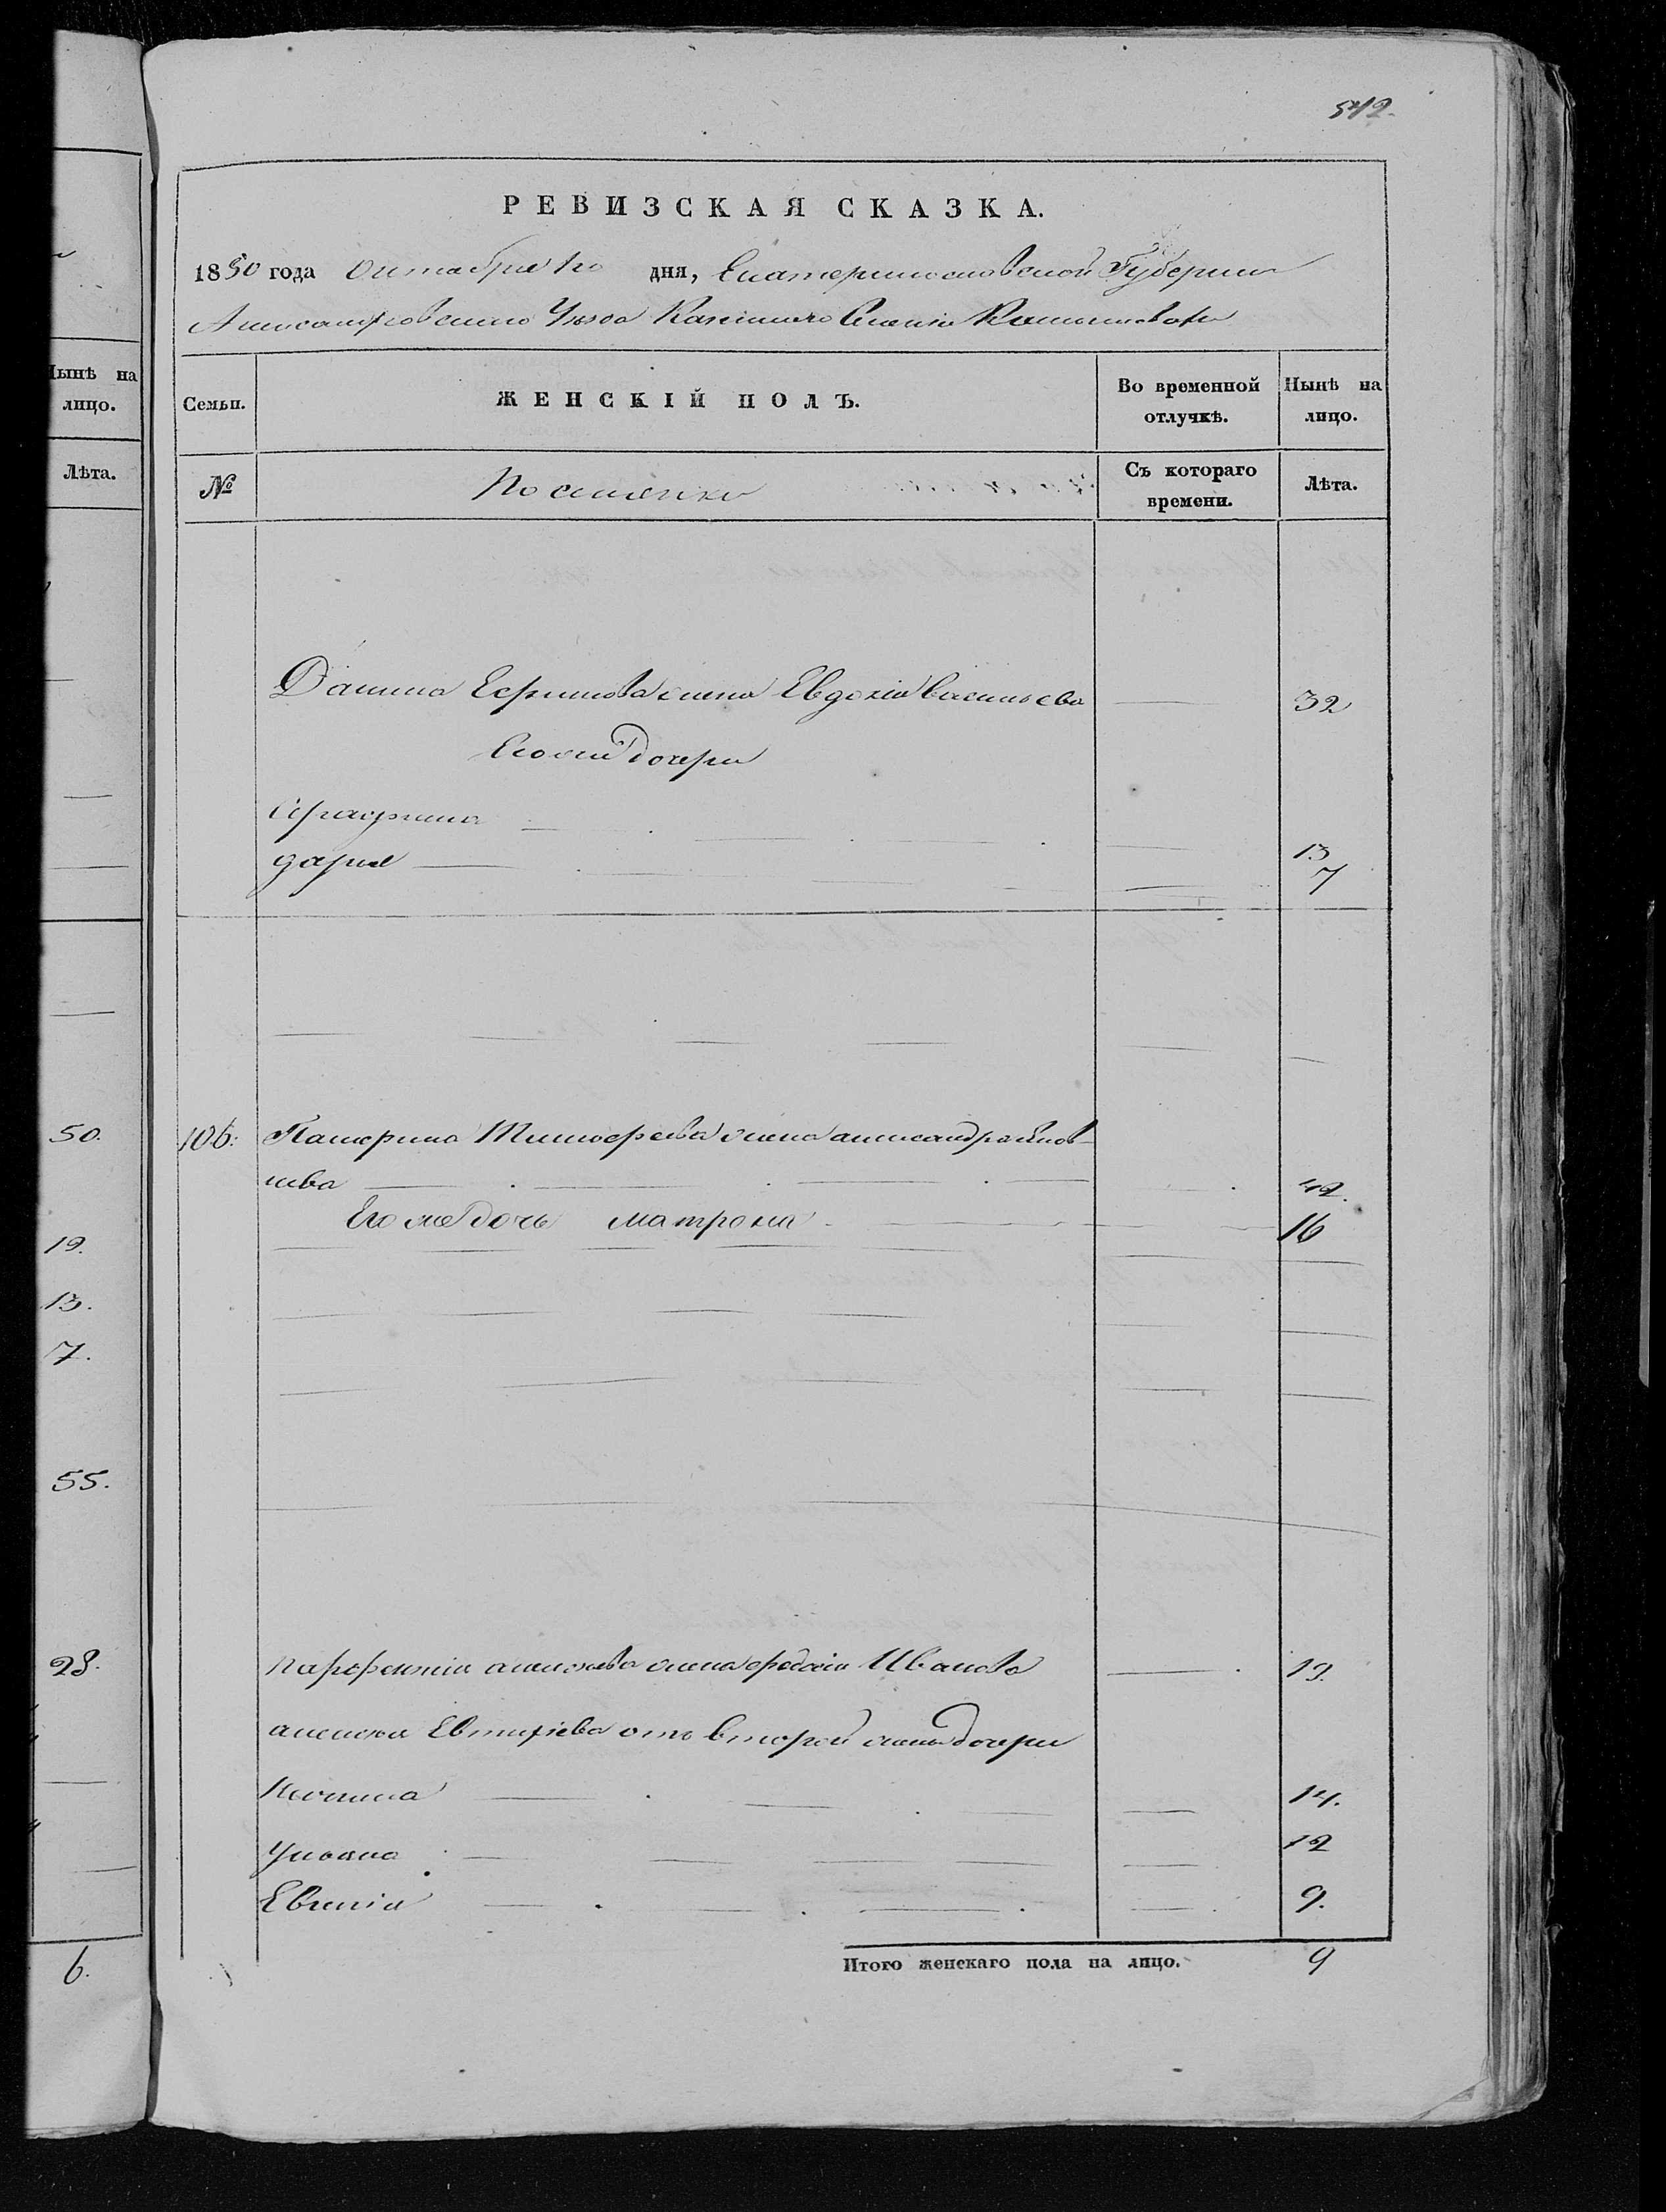 542.
РЕВИЗСКАЯ СКАЗКА.
1850 года Октября 1го дня, Екатеринославской Губернии
Александровскаго Уезда Казеннаго Селения
Нынѣ на
лицо.
Семьи.
ЖЕНСКІЙ ПОЛЪ.
Во временной
отлучкѣ.
Нынѣ на
лицо.
Лѣта.
№
Поселянки
Съ котораго
времени.
Лѣта.
Данила Ефимова жена Евдокія Васильева 32
Его же дочери
Аграфина 13
дарья 7
50.
106: Тимофеева жена александра
ева 42.
Его же дочь матрона 16
19.
13.
7.
55.
28.
парфентія алексеева жена федосія Иванова 19.
алексея Евтихіева отъ второй жены дочери
14.
Ульяна 12
Евгенія 9.
6.
Итого женскаго пола на лицо. 9